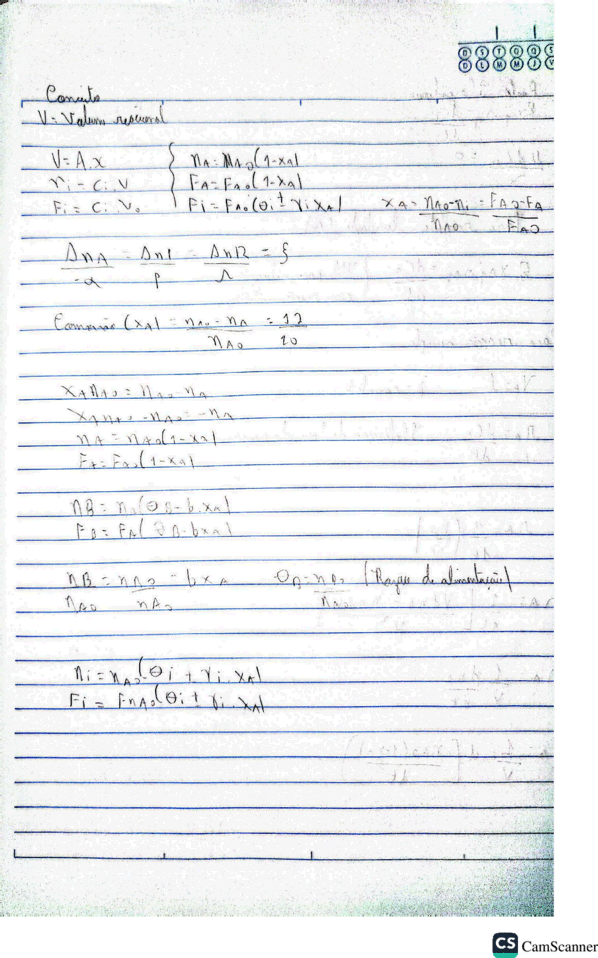 D S T Q Q S
D L M M J V
Conceito
V = Volume reacional
V = A.x { nA = nA0(1-xA)
ni = ci.V FA = FA0(1-xA)
Fi = ci.v0 Fi = FA0(θi ± γi xA) xA = nA0-ni / nA0 = FA0-FA / FA0
ΔnA / -a = Δn / = ΔnR / r = ξ
Conversão (xA) = nA0 - nA / nA0 = 12 / 20
xA nA0 = nA0 - nA
xA nA0 - nA0 = -nA
nA = nA0(1-xA)
FA = FA0(1-xA)
nB = (θB - b.xA)
FB = FA(θB - bxA)
nB / nA0 = nA0 / nA0 - b xA θB = nB0 / nA0 (Razão de alimentação)
ni = nA0(θi ± γi.xA)
Fi = FnA0(θi ± γi.xA)
CS CamScanner